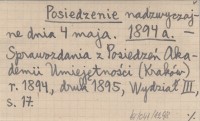 Posiedzenie nadzwyczaj-
ne dnia 4 maja. 1894 a. —
Sprawozdania z Posiedzeń Aka-
demii Umiejętności (Kraków)
r. 1894, druk 1895, Wydział III,
s. 17.